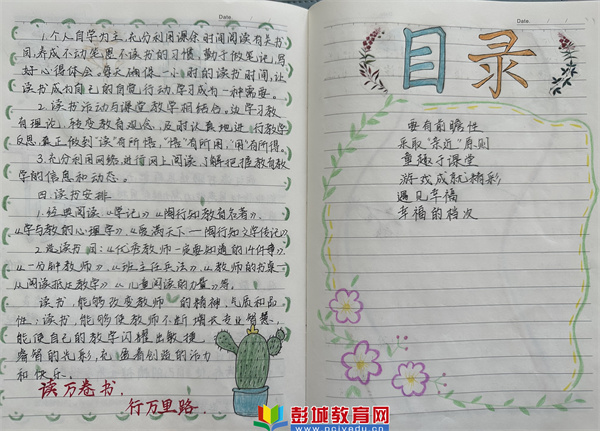 Date.
1.个人自学为主,充分利用课余时间阅读有关书
目,养成不动笔墨不读书的习惯,勤于做笔记,写
好心得体会。每天确保一小时的读书时间,让
读书成为自己的自觉行动,学习成为一种需要。
2.读书活动与课堂教学相结合。边学习教
育理论,转变教育观念,及时认真地进行教学
反思,真正做到"读"有所悟,"悟"有所用,"用"有所得。
3.充分利用网络,进行网上阅读,了解把握教育教
学的信息和动态。
四.读书安排
1.经典阅读:《学记》《陶行知教育名著》、
《学与教的心理学》、《爱满天下—陶行知文学传记》
2.选读书目:《优秀教师一定要知道的14件事》、
《一分钟教师》、《班主任兵法》、《教师的书桌—
从阅读抵达教学》、《儿童阅读的力量》等。
读书,能够改变教师的精神,气质和品
性;读书,能够使教师不断增长专业智慧,
能使自己的教学闪耀出敏捷
睿智的光彩,充盈着创造的活力
和快乐。
读万卷书,
行万里路.
Date.
目录
要有前瞻性
采取"亲近"原则
童趣于课堂
游戏成就精彩
遇见幸福
幸福的档次
彭城教育网
www.pcjyedu.cn